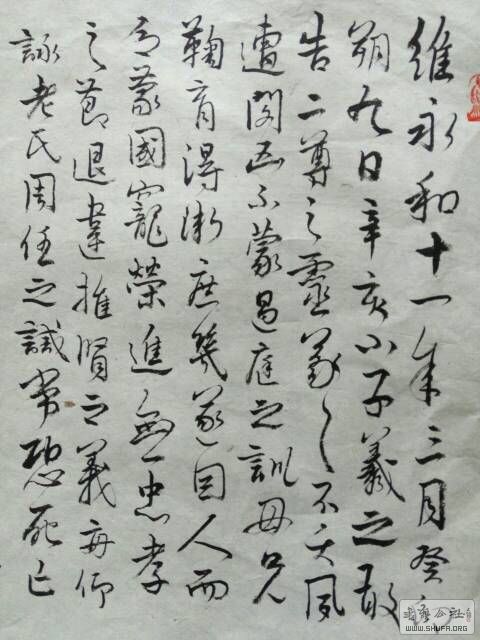 維永和十一年三月癸卯
朔九日辛亥小子羲之敢
告二尊之靈羲之不天夙
遭閔凶不蒙過庭之訓母兄
鞠育得漸庶幾遂因人而
乏蒙國寵榮進無忠孝
之節退違推賢之義每仰
詠老氏周任之誡常恐死亡
WWW.SHUFA.ORG